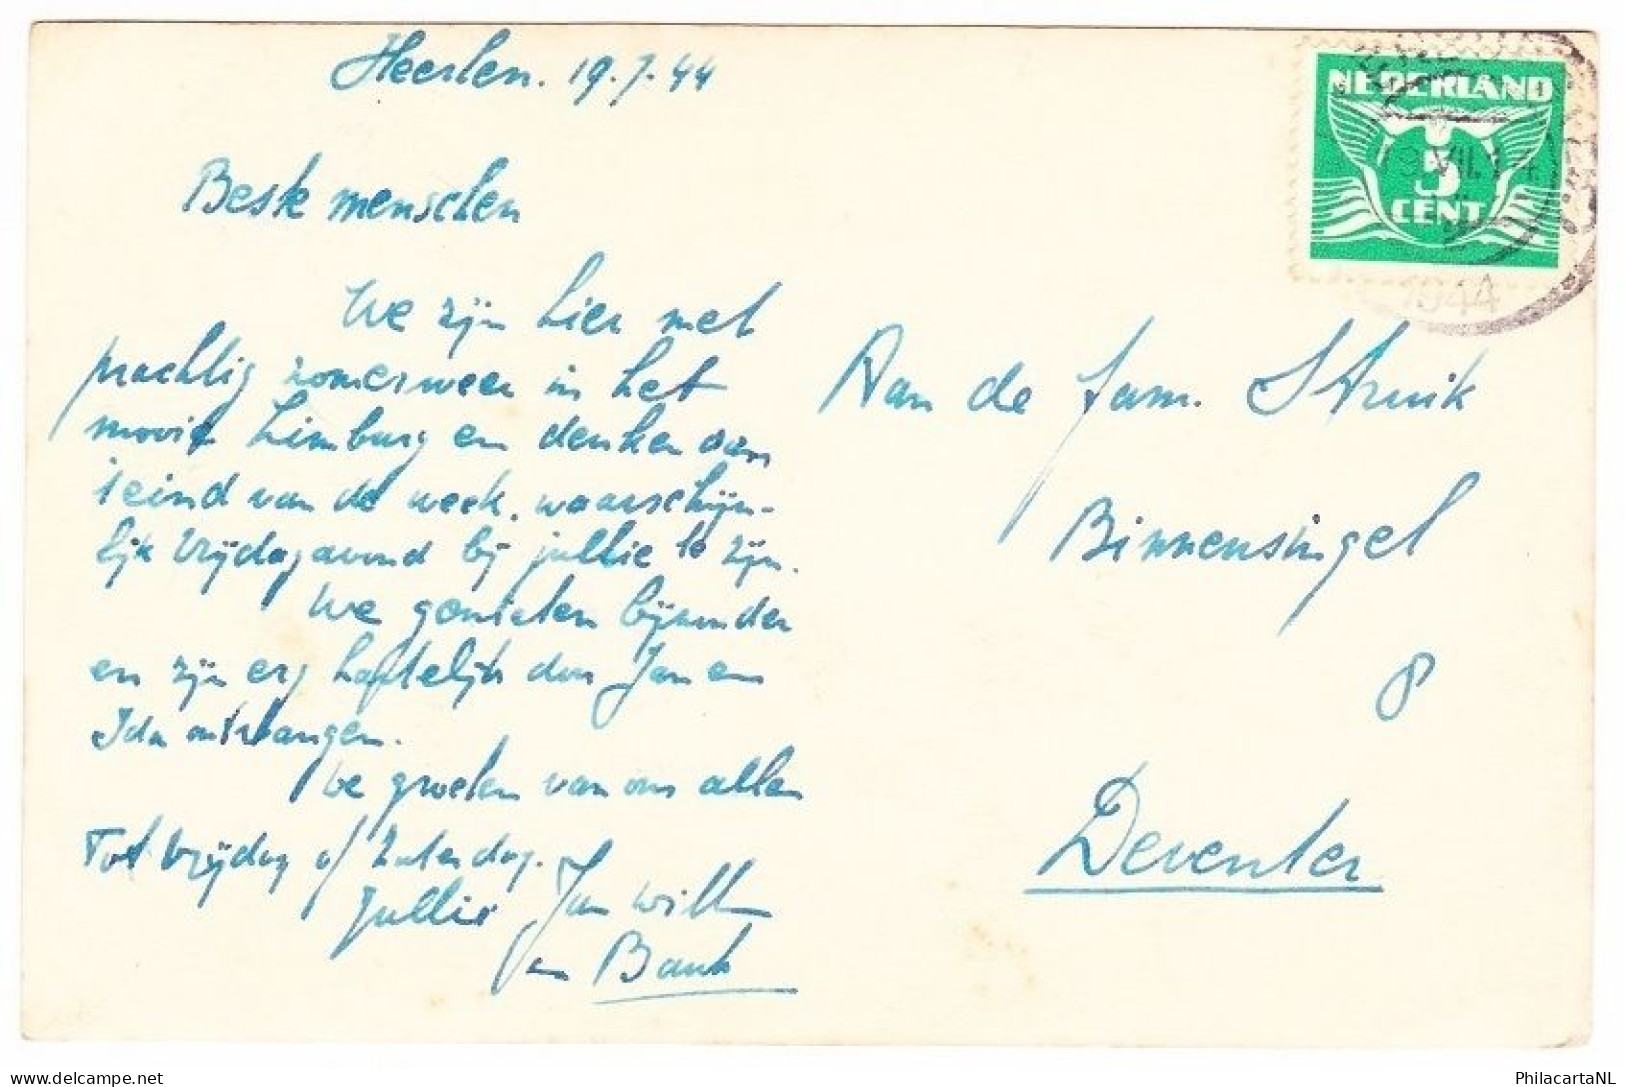 Heerlen. 19.7.44
Beste menschen
We zijn hier met
prachtig zomerweer in het
mooie Limburg en denken aan
't eind van de week, waarschijn-
lijk Vrijdagavond bij jullie te zijn.
We genieten bijzonder
en zijn erg hartelijk door Jan en
Ida ontvangen.
De groeten van ons allen
Tot Vrijdag of Zaterdag.
Jullie Jan Willem
van
NEDERLAND
5
CENT
19.VII.
1944
Aan de fam. Struik
Binnensingel
8
Deventer
www.delcampe.net
PhilacartaNL